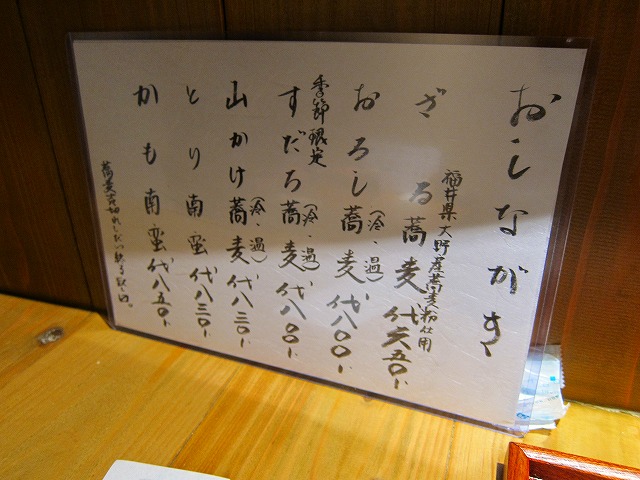 おしながき
福井県大野産蕎麦粉仕用
ざる蕎麦 代六五〇-
おろし蕎麦(冷・温) 代八〇〇-
季節限定
すだち蕎麦(冷・温) 代八〇〇-
山かけ蕎麦(冷・温) 代八三〇-
とり南蛮 代八三〇-
かも南蛮 代八五〇-
蕎麦売切れしだい終了致〼。